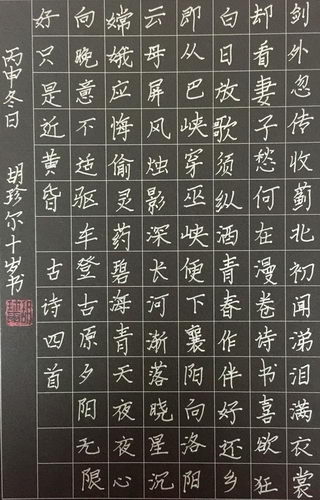 剑外忽传收蓟北初闻涕泪满衣裳
却看妻子愁何在漫卷诗书喜欲狂
白日放歌须纵酒青春作伴好还乡
即从巴峡穿巫峡便下襄阳向洛阳
云母屏风烛影深长河渐落晓星沉
嫦娥应悔偷灵药碧海青天夜夜心
向晚意不适驱车登古原夕阳无限
好只是近黄昏 古诗四首
丙申冬日 胡珍尔十岁书